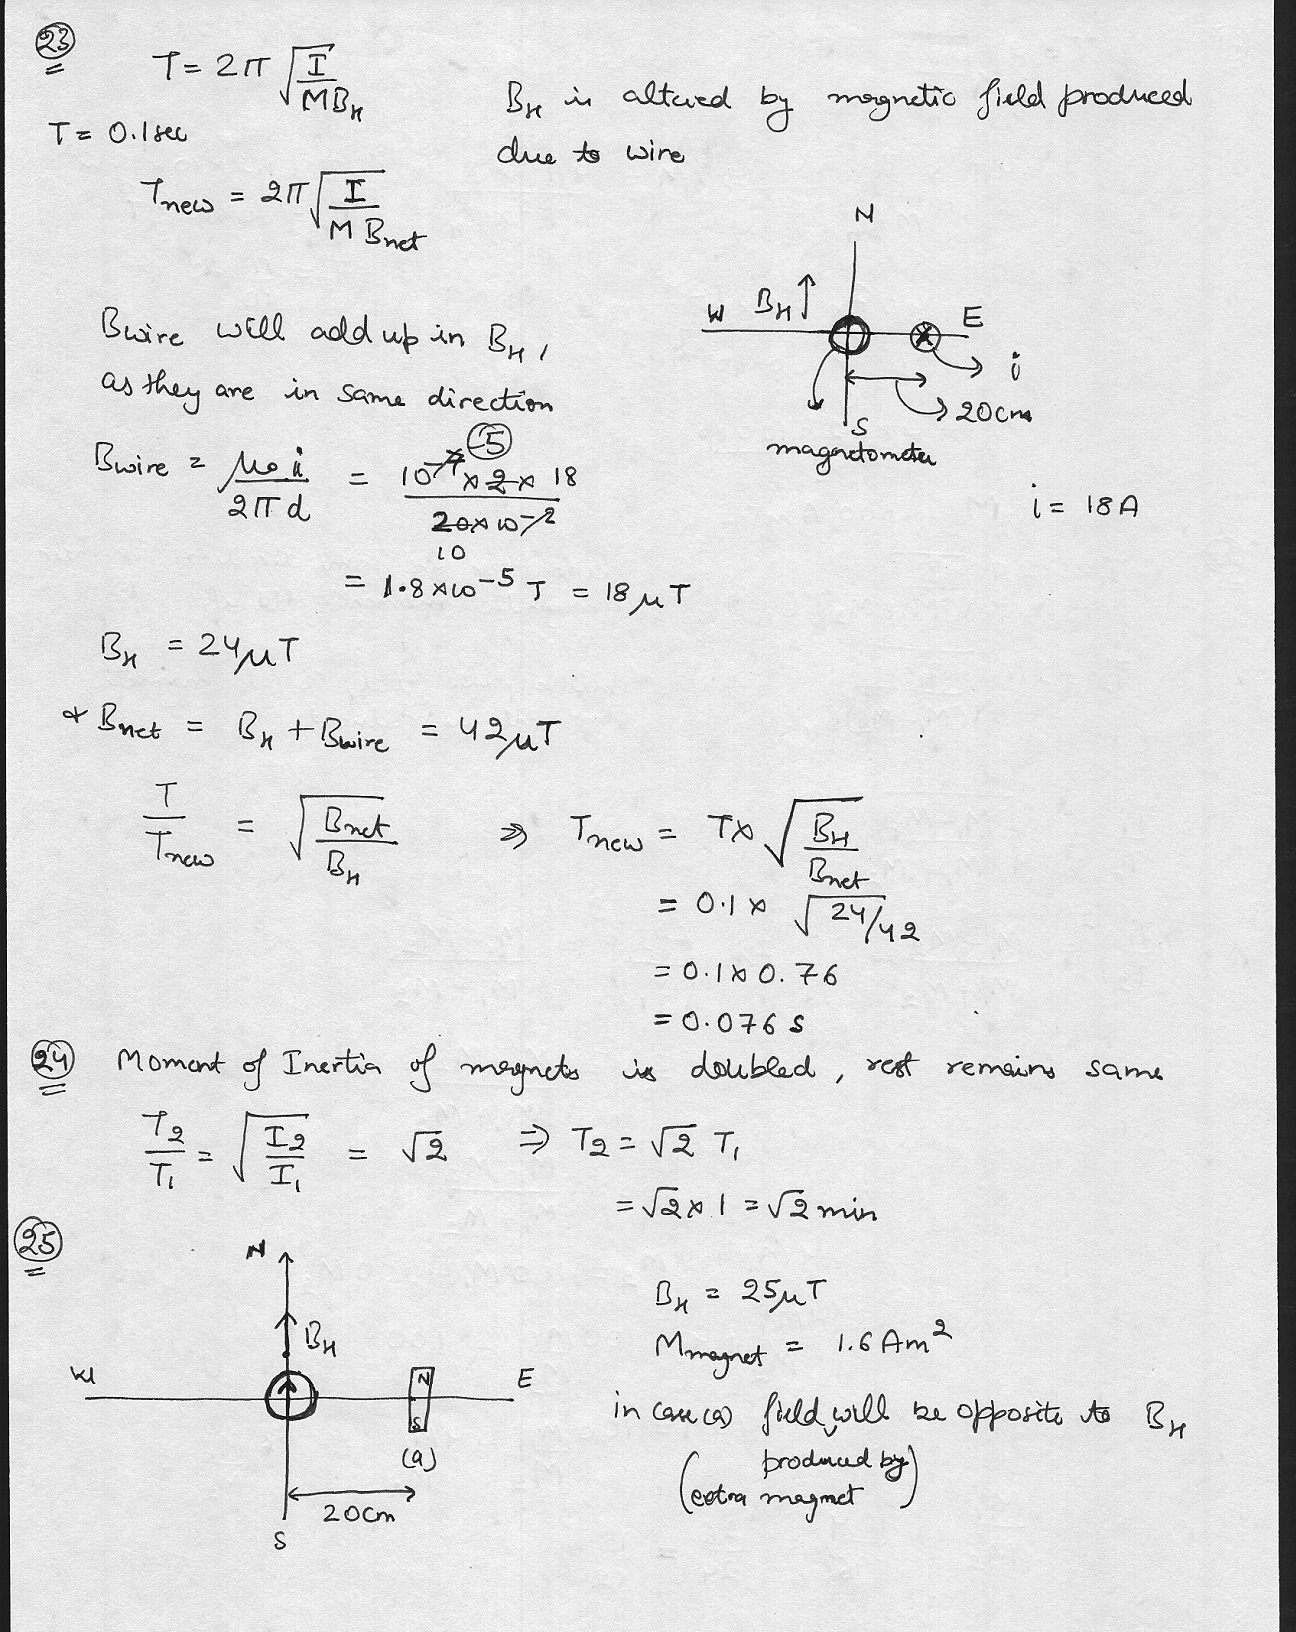 23
T = 2π √(I / MB_H)
B_H is altered by magnetic field produced
due to wire
T = 0.1 sec
T_new = 2π √(I / M B_net)
N
W B_H ↑ E
i
20cm
S
magnetometer
i = 18A
B_wire will add up in B_H,
as they are in same direction
B_wire = μ₀ i / 2π d = 10^-7 × 2 × 18 / 20 × 10^-2
-5
10
= 1.8 × 10^-5 T = 18 μT
B_H = 24 μT
& B_net = B_H + B_wire = 42 μT
T / T_new = √(B_net / B_H) ⇒ T_new = T × √(B_H / B_net)
= 0.1 × √(24/42)
= 0.1 × 0.76
= 0.076 s
24 Moment of Inertia of magnets is doubled, rest remains same
T₂ / T₁ = √(I₂ / I₁) = √2 ⇒ T₂ = √2 T₁
= √2 × 1 = √2 min
25
N
B_H
W E
N
S
(a)
20cm
S
B_H = 25 μT
M_magnet = 1.6 Am²
in case (a) field will be opposite to B_H
(produced by
extra magnet)